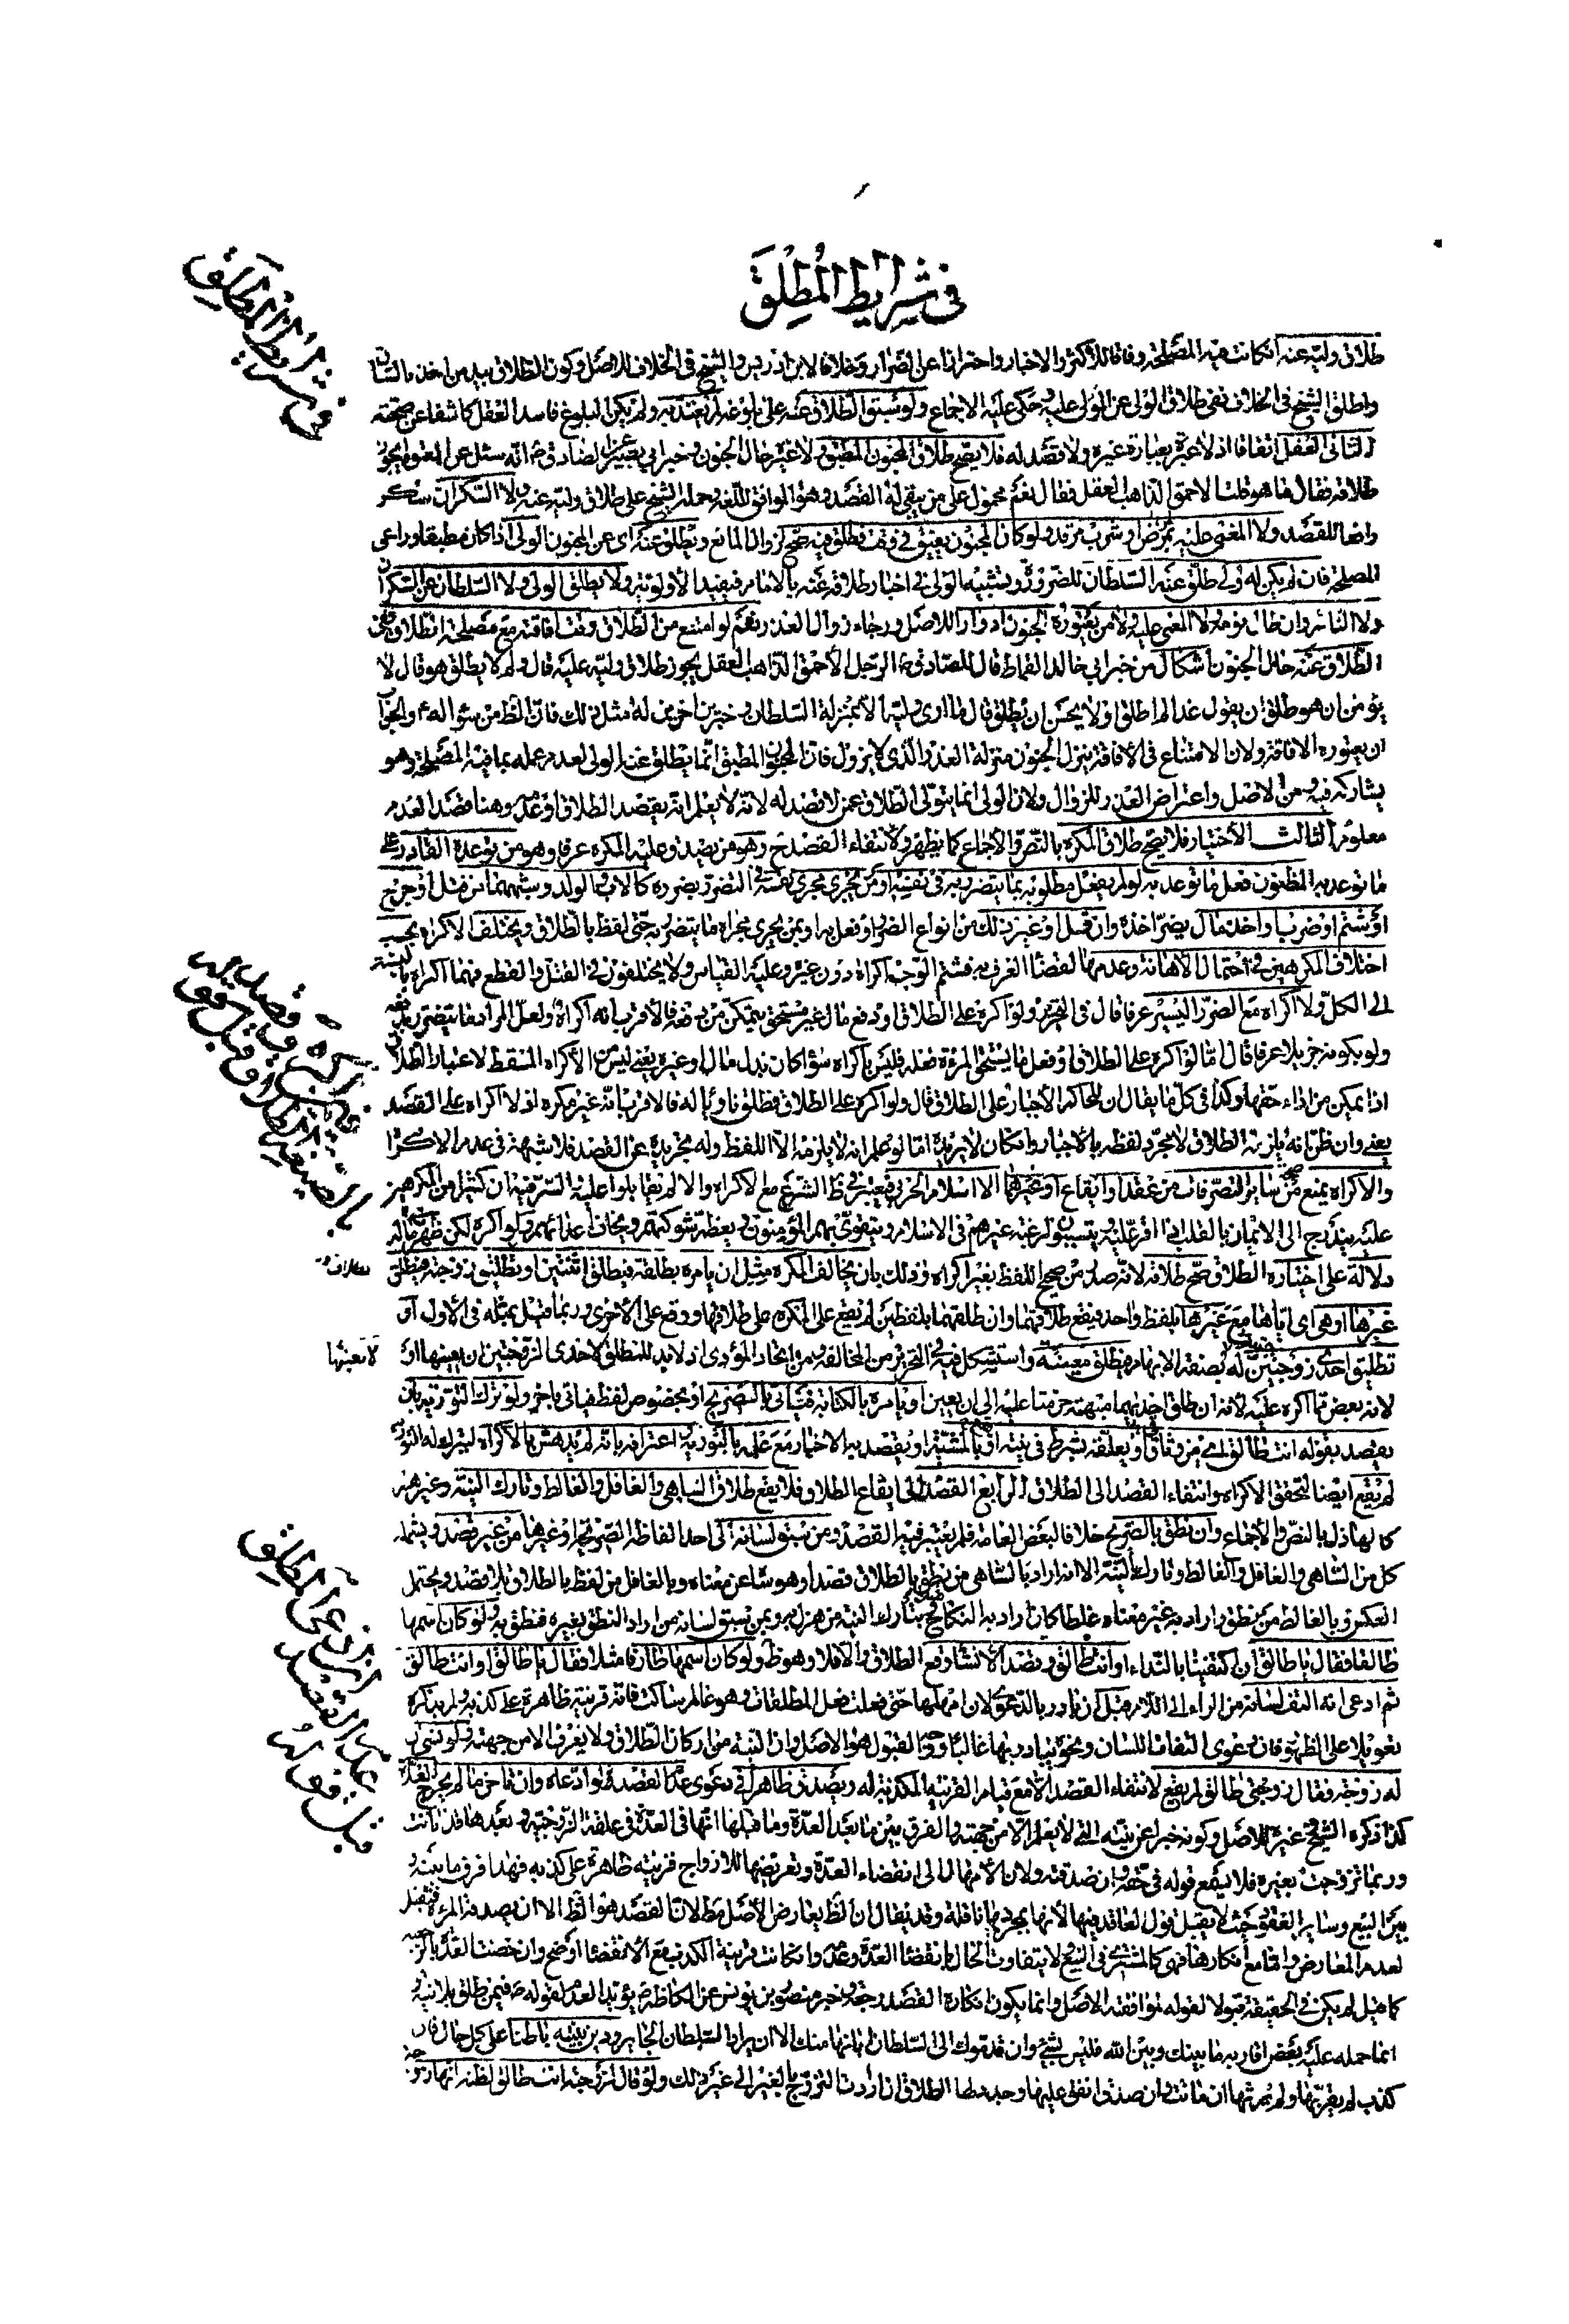 في شرايط المطلق
طلاق وليه عنه ان كانت فيه المصلحة وفاقا للاكثر والاخبار واحترازا عن الضرار وخلافا لابن ادريس والشيخ في الخلاف للاصل وكون الطلاق بيد من اخذ بالساق
واطلق الشيخ في الخلاف نفى طلاق الولى عن المولى عليه وحكى عليه الاجماع ولو سبق الطلاق عنه على بلوغه لم يعتد به ولم يكن البلوغ فاسد العقل كاشفا عن صحته
الثاني العقل اتفاقا اذ لا عبرة بعبارة غيره ولا قصد له فلا يصح طلاق المجنون المطبق ولا غيره حال الجنون وخبر ابي بصير عن الصادق ع انه سئل عن المعتوه ايجوز
طلاقه فقال ما هو قلت الاحمق الذاهب العقل فقال نعم محمول على من يبقى له القصد وهو الموافق للغة وحمله الشيخ على طلاق وليه عنه ولا السكران سكرا
رافعا للقصد ولا المغمى عليه بمرض او شرب مرقد ولو كان المجنون يفيق في وقت فطلق فيه صح لزوال المانع ويطلق عنه اى عن المجنون الولى اذا كان مطبقا وراعى
المصلحة فان لم يكن له ولى طلق عنه السلطان للضرورة وتشبيه الولى في اخبار طلاقه عنه بالامام فيفيد الاولوية ولا يطلق الولى ولا السلطان عن السكران
ولا النائم وان طال نومه ولا المغمى عليه ولا من يعتوره الجنون ادوارا للاصل ورجاء زوال العذر نعم لو امتنع من الطلاق وقت افاقته مع مصلحة الطلاق ففي
الطلاق عنه حال الجنون اشكال من خبر ابي خالد القماط قال للصادق ع الرجل الاحمق الذاهب العقل يجوز طلاق وليه عليه قال ولم لا يطلق هو قال لا
يؤمن ان هو طلق ان يقول غدا لم اطلق او لا يحسن ان يطلق قال ما ارى وليه الا بمنزلة السلطان وخبرين اخرين له مثل ذلك فان الظ من سؤاله ع والجواب
ان يعتوره الافاقة ولان الامتناع في الافاقة ينزل الجنون منزلة العذر الذي لا يزول فان المجنون المطبق انما يطلق عنه الولى لعدم عمله بما فيه المصلحة وهو
يشاركه فيه ومن الاصل واعتراض العذر للزوال ولان الولى انما يتولى الطلاق عمن لا قصد له لانه لا يعلم انه يقصد الطلاق او عدمه وهنا قصد العدم
معلوم الثالث الاختيار فلا يصح طلاق المكره بالنص والاجماع كما يظهر ولانتفاء القصد ح وهو من يصدق عليه المكره عرفا وهو من توعده القادر على
ما توعد به المظنون فعل ما توعد به لو لم يفعل مطلوبه بما يتضرر به في نفسه او من يجرى مجرى نفسه في التضرر بضرره كالاب والولد وشبههما من قتل او جرح
او شتم او ضرب او اخذ مال يضر اخذه وان قل او غير ذلك من انواع الضرر او فعل به او بمن يجرى مجراه ما يتضرر به حتى لفظ بالطلاق ويختلف الاكراه بحسب
اختلاف المكرهين في احتمال الاهانة وعدمها لقضاء العرف به فشتم الوجيه اكراه دون غيره وعليه القياس ولا يختلفون في القتل والقطع فهما اكراه بالنسبة
الى الكل ولا اكراه مع الضرر اليسير عرفا قال في التحرير ولو اكره على الطلاق او دفع مال غير مستحق يتمكن من دفعه فالاقرب انه اكراه ولعل المراد ما يتضرر بدفعه
ولو بكونه جزيلا عرفا قال اما لو اكره على الطلاق او فعل ما يستحق المرءة فعله فليس باكراه سواء كان بذل مال او غيره يعنى ليس من الاكراه المسقط لاعتبار الطلاق
اذا تمكن من اداء حقها وكذا في كل ما يقال ان للحاكم الاجبار على الطلاق قال ولو اكره على الطلاق فطلق ناويا له فالاقرب انه غير مكره اذ لا اكراه على القصد
يعنى وان ظن انه يلزمه الطلاق لا مجرد لفظه بالاجبار وان كان لا يريده اما لو علم انه لا يلزمه الا اللفظ وله تجريده عن القصد فلا شبهة في عدم الاكراه
والاكراه يمنع صحة ساير التصرفات من عقد او ايقاع او غيرهما الا اسلام الحربي فيعتبر في ظ الشرع مع الاكراه والا لم يقاتلوا عليه والسر فيه ان كثيرا من المكرهين
عليه يتدرج الى الايمان بالقلب اذا اقر عليه ويتسبب لرغبة غيرهم في الاسلام ويتقوى بهم المؤمنون ويعظم شوكتهم ويخاف اعدائهم ولو اكره لكن ظهر ماله
دلالة على اختياره الطلاق صح طلاقه لانه صدر من صحيح اللفظ بغير اكراه وذلك بان يخالف المكره مثل ان يامره بطلقة فيطلق اثنتين او بطلاق زوجة فيطلق
غيرها او هي اى اياها مع غيرها بلفظ واحد فيقع طلاقهما وان طلقهما بلفظين لم يقع على المكره على طلاقها ووقع على الاخرى وربما قيل بمثله في الاول او
تطليق احدى زوجتين له بصفة الابهام فيطلق معينة واستشكل فيه في التحرير من المخالفة ومن اتحاد المؤدى اذ لا بد للمطلق لاحدى الزوجتين ان يعينها او لا يعينها
لانه بعض مما اكره عليه لانه ان طلق احديهما مبهمة حرمتا عليه الى ان يعين او يامره بالكناية فياتي بالتصريح او بخصوص لفظ فياتي باخر ولو ترك التورية بان
يقصد بقوله انت طالق اى من وثاق او يعلقه بشرط في نيته او بالمشية او يقصد به الاخبار مع علمه بالتورية واعترافه بانه لم يدهش بالاكراه ليترك له التورية
لم يقع ايضا لتحقق الاكراه وانتفاء القصد الى الطلاق الرابع القصد الى ايقاع الطلاق فلا يقع طلاق الساهي والغافل والغالط وتارك النية وغيرهم
كالهاذل بالنص والاجماع وان نطق بالصريح خلافا لبعض العامة فلم يعتبر فيه القصد ومن سبق لسانه الى احد الفاظه الصريحة او غيرها من غير قصد ويشمله
كل من الساهي والغافل والغالط وتارك النية الا انه اراد بالساهي من نطق بالطلاق قصدا وهو ساه عن معناه وبالغافل من لفظ بالطلاق بلا قصد ويحتمل
العكس وبالغالط من نطق واراد به غير معناه غلطا كان اراد به النكاح وبتارك النية من هزل به وبمن سبق لسانه من اراد النطق بغيره فنطق به ولو كان اسمها
طالقا فقال يا طالق ان اكتفينا بالنداء او انت طالق وقصد الانشاء وقع الطلاق والا فلا وهو ظ ولو كان اسمها طارقا مثلا فقال يا طالق او انت طالق
ثم ادعى انه التف لسانه من الراء الى اللام قبل ان بادر بالدعوى لان امهلها حتى فعلت فعل المطلقات وهو عالم ساكت فانه قرينة ظاهرة على كذبه ولم يذكره
تعويلا على الظهور فان دعوى التفات اللسان ونحوه يبادر بها غالبا ووجه القبول هو الاصل وان النية من اركان الطلاق ولا يعرف الا من جهته ولو نسي ان
له زوجة فقال زوجتي طالق لم يقع لانتفاء القصد الا مع قيام القرينة المكذبة له ويصدق ظاهرا في دعوى عدم القصد لو ادعاه وان تاخر ما لم يخرج العدة
كذا ذكره الشيخ وغيره للاصل وكونه خبرا عن نيته التي لا يعلم الا من جهته والفرق بين ما بعد العدة وما قبلها انها في العدة في علقة الزوجية وبعدها قد بانت
وربما تزوجت بغيره فلا يسمع قوله في حقه وان صدقته ولان الامهال الى انقضاء العدة وتعريضها للازواج قرينة ظاهرة على كذبه فهذا فرق ما بينه و
بين البيع وساير العقود حيث لا يقبل قول العاقد فيها لانها بمجردها ناقلة وقد يقال ان الظ يعارض الاصل مطلقا لان القصد هو الظ الا ان يصدقه المرءة فيقبل
لعدم المعارض واما مع انكارها فهي كالمشترى في البيع ولا يتفاوت الحال بانقضاء العدة وعدمه وان كانت قرينة الكذب مع الانقضاء اوضح وان خصت العدة بالرجعية
كما قيل لم يكن في الحقيقة قبولا لقوله لموافقته الاصل وانما يكون انكاره القصد رجعة وخبر منصور بن يونس عن الكاظم ع يؤيد العدم لقوله ع فيمن طلق بلا نية و
انما حمله عليه بعض اقاربه ما بينك وبين الله فليس بشيء وان قدموك الى السلطان ابانها منك الا ان يراد السلطان الجاير ودين بنيته باطنا على كل حال فان
كذب لم يقربها ولم يرثها ان ماتت وان صدق انفق عليها وجدد لها الطلاق ان ارادت التزوج بالغير الى غير ذلك ولو قال لزوجته انت طالق لظنه انها زوجة
في شرايط المطلق
فيما لو اكره
بالصيغة
قبل قوله